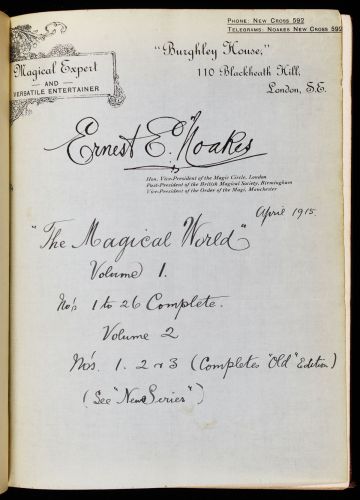 PHONE: NEW CROSS 592
TELEGRAMS: NOAKES NEW CROSS 592
Magical Expert
AND
VERSATILE ENTERTAINER
"Burghley House,"
110 Blackheath Hill,
London, S.E.
Ernest E. Noakes
Hon. Vice-President of the Magic Circle, London
Past-President of the British Magical Society, Birmingham
Vice-President of the Order of the Magi, Manchester
April 1915.
"The Magical World"
Volume 1.
No's 1 to 26 Complete.
Volume 2
No's. 1. 2 & 3 (Completes "Old" Edition)
(See "New Series")